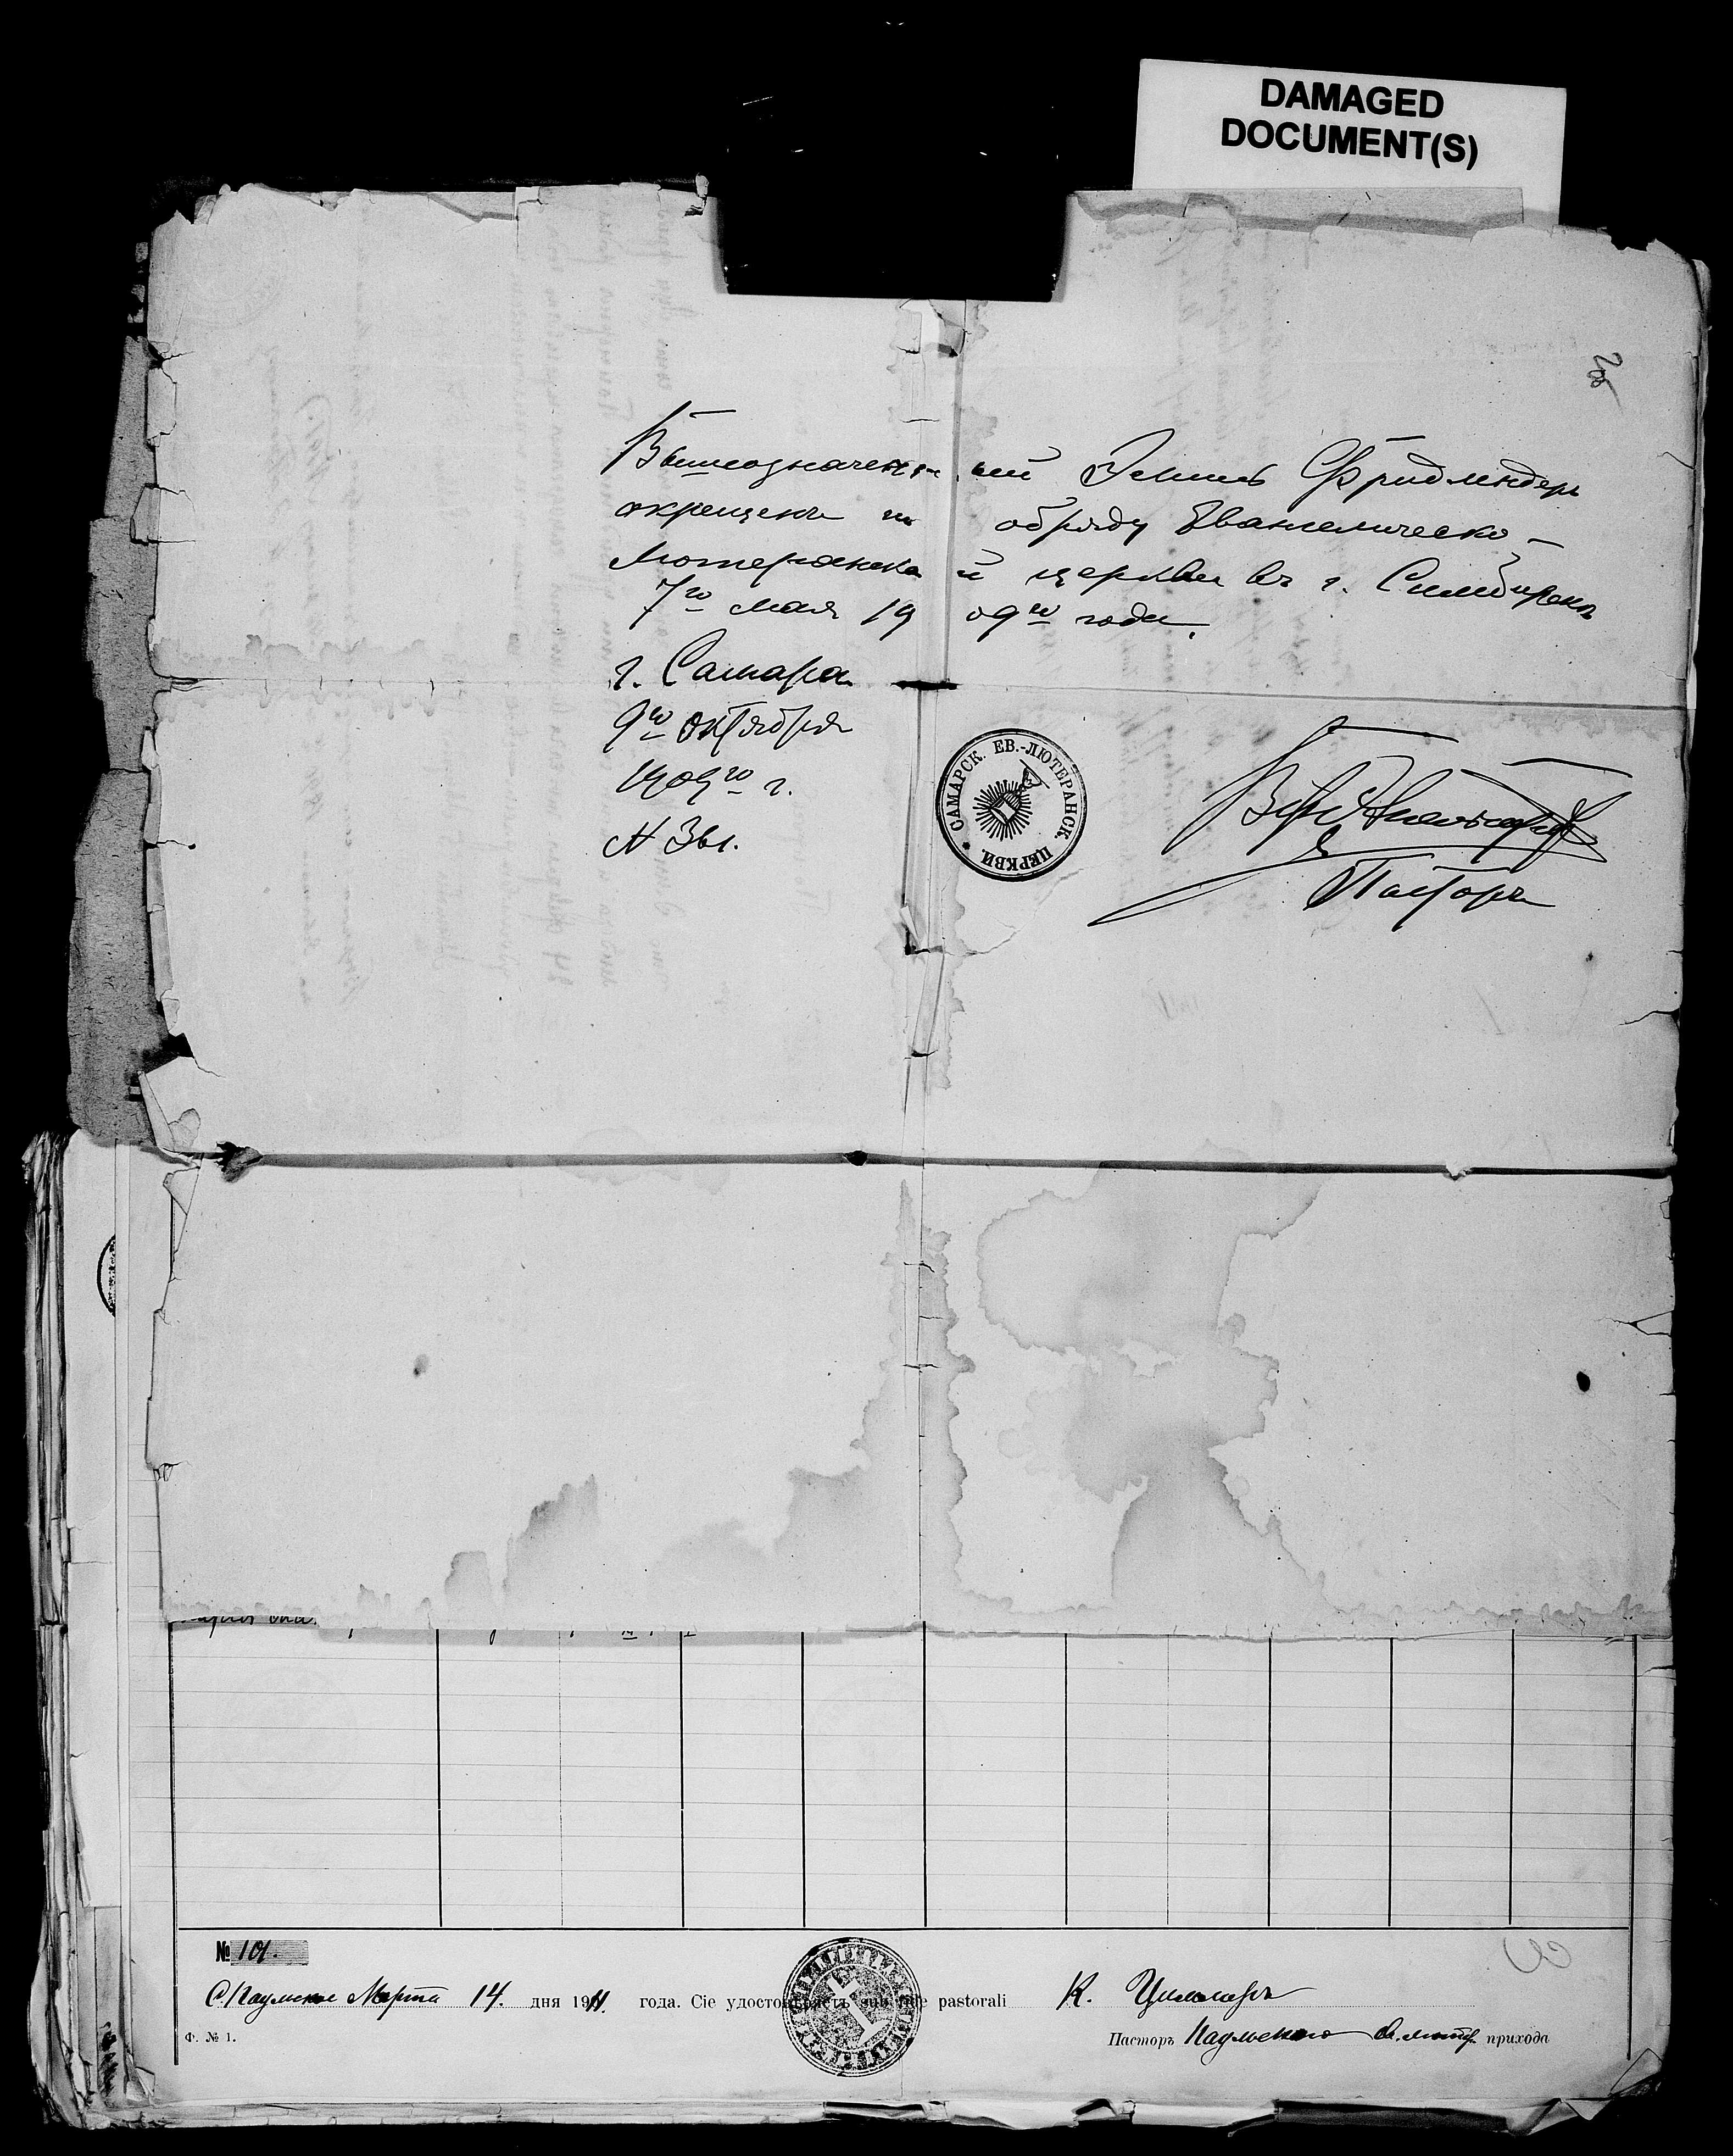 DAMAGED
DOCUMENT(S)
Вышеозначенный Эмиль Фридлендеръ
окрещенъ по обряду Евангелическо-
Лютеранской церкви въ г. Симбирскѣ
7го мая 1909го года.
г. Самара
9го октября
1909го г.
N 361.
САМАРСК. ЕВ.-ЛЮТЕРАНСК. ЦЕРКВИ.
Пасторъ
№ 101.
С. Паульское Марта 14. дня 1911. года. Сіе удостовѣряетъ sub fide pastorali К. Циммеръ
Ф. № 1.
Пасторъ Паульскаго Ев. лютер. прихода